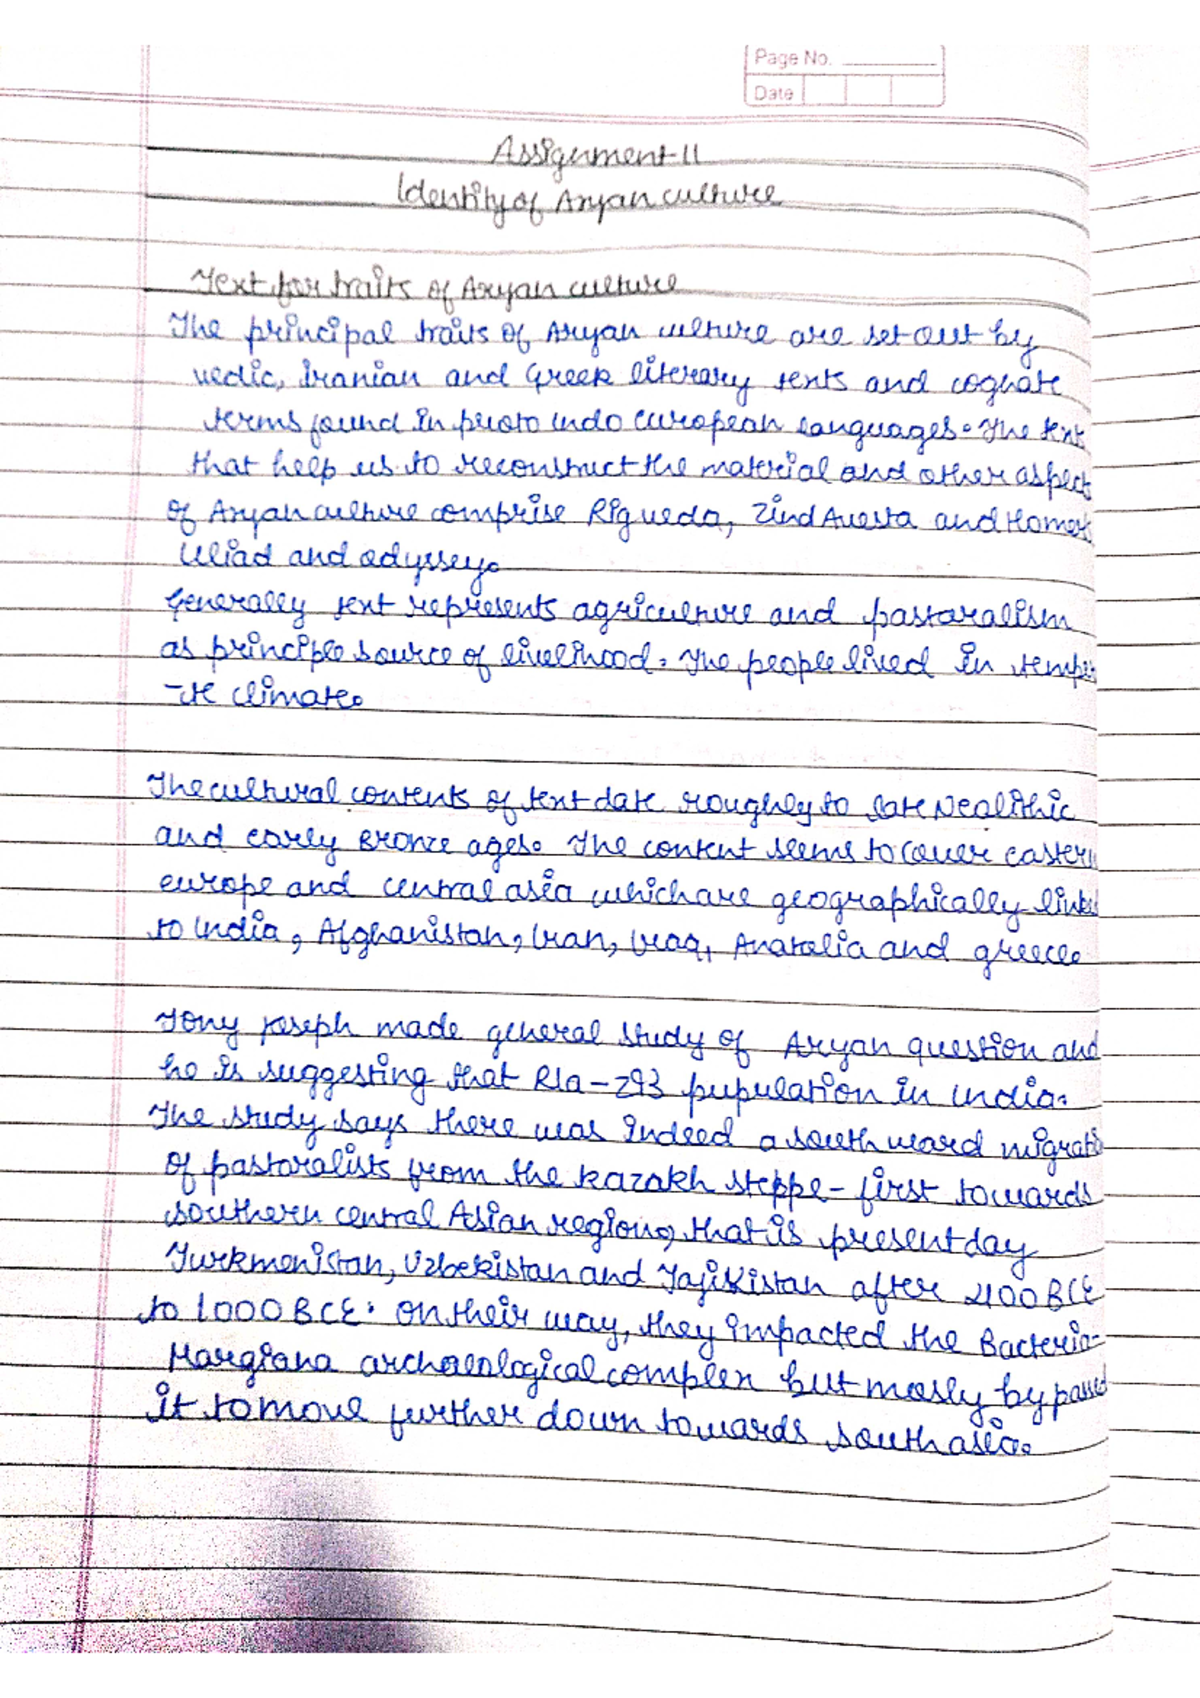 Page No.
Date
Assignment-11
Identity of Aryan culture
Text for traits of Aryan culture
The principal traits of Aryan culture are set out by
vedic, Iranian and Greek literary texts and cognate
terms found in proto indo european languages. The text
that help us to reconstruct the material and other aspect
of Aryan culture comprise Rigveda, Zind Avesta and Homer
Iliad and odyssey.
Generally text represents agriculture and pastaralism
as principle source of livelihood. The people lived in temper
-te climate.
The cultural contents of text date roughly to late Nealithic
and early Bronze ages. The content seems to cover eastern
europe and central asia which are geographically linked
to India, Afghanistan, Iran, Iraq, Anatalia and greece.
Tony joseph made general study of Aryan question and
he is suggesting that R1a-Z93 pupulation in India.
The study says there was indeed a southward migrati
of pastaralists from the kazakh steppe - first towards
southern central Asian region, that is present day
Turkmenistan, Uzbekistan and Tajikistan after 2100 BCE
to 1000 BCE. on their way, they impacted the Bacteria-
Margiana archaeological complex but mosly bypassed
it to move further down towards south asia.